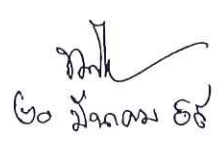 ๒๐ มีนาคม ๖๕